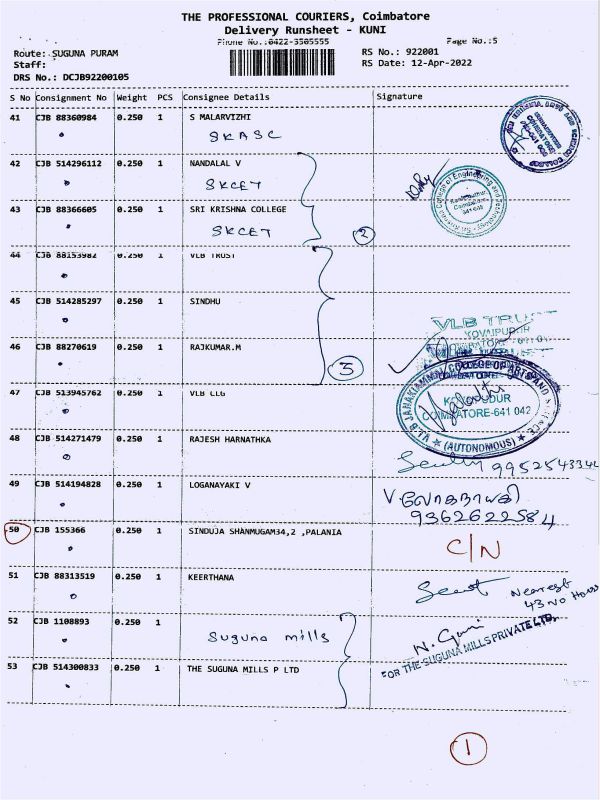 THE PROFESSIONAL COURIERS, Coimbatore
Delivery Runsheet - KUNI
Phone No.:0422-3505555 Page No.:5
Route: SUGUNA PURAM RS No.: 922001
Staff: RS Date: 12-Apr-2022
DRS No.: DCJB92200105
S No Consignment No Weight PCS Consignee Details Signature
41 CJB 88360984 0.250 1 S MALARVIZHI
SKASC
42 CJB 514296112 0.250 1 NANDALAL V
SKCET
43 CJB 88366605 0.250 1 SRI KRISHNA COLLEGE
SKCET
2
44 CJB 88153982 0.250 1 VLB TRUST
45 CJB 514285297 0.250 1 SINDHU
VLB TRUST
KOVAIPUDUR
46 CJB 88270619 0.250 1 RAJKUMAR.M
3
VLB JANAKIAMMAL COLLEGE OF ARTS AND
47 CJB 513945762 0.250 1 VLB CLG
KOVAIPUDUR
COIMBATORE-641 042
(AUTONOMOUS)
48 CJB 514271479 0.250 1 RAJESH HARNATHKA
49 CJB 514194828 0.250 1 LOGANAYAKI V
V லோகநாயகி
9362622584
50 CJB 155366 0.250 1 SINDUJA SHANMUGAM34,2 ,PALANIA
C/N
51 CJB 88313519 0.250 1 KEERTHANA
Nearest
43 NO House
52 CJB 1108893 0.250 1
Suguna mills
FOR THE SUGUNA MILLS PRIVATE LTD.
53 CJB 514300833 0.250 1 THE SUGUNA MILLS P LTD
1